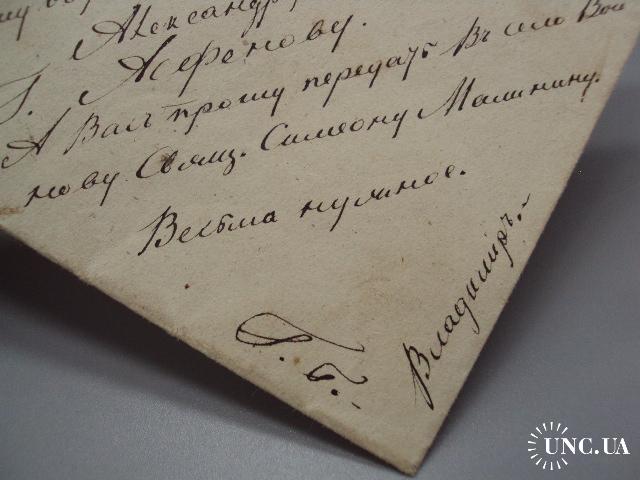 Александру
Г. Асфенову.
А Васъ прошу передать Въ село Вои
нову Свящ. Симеону Малинину.
Весьма нужное.
Владимиръ.
Г. Б.
UNC.UA